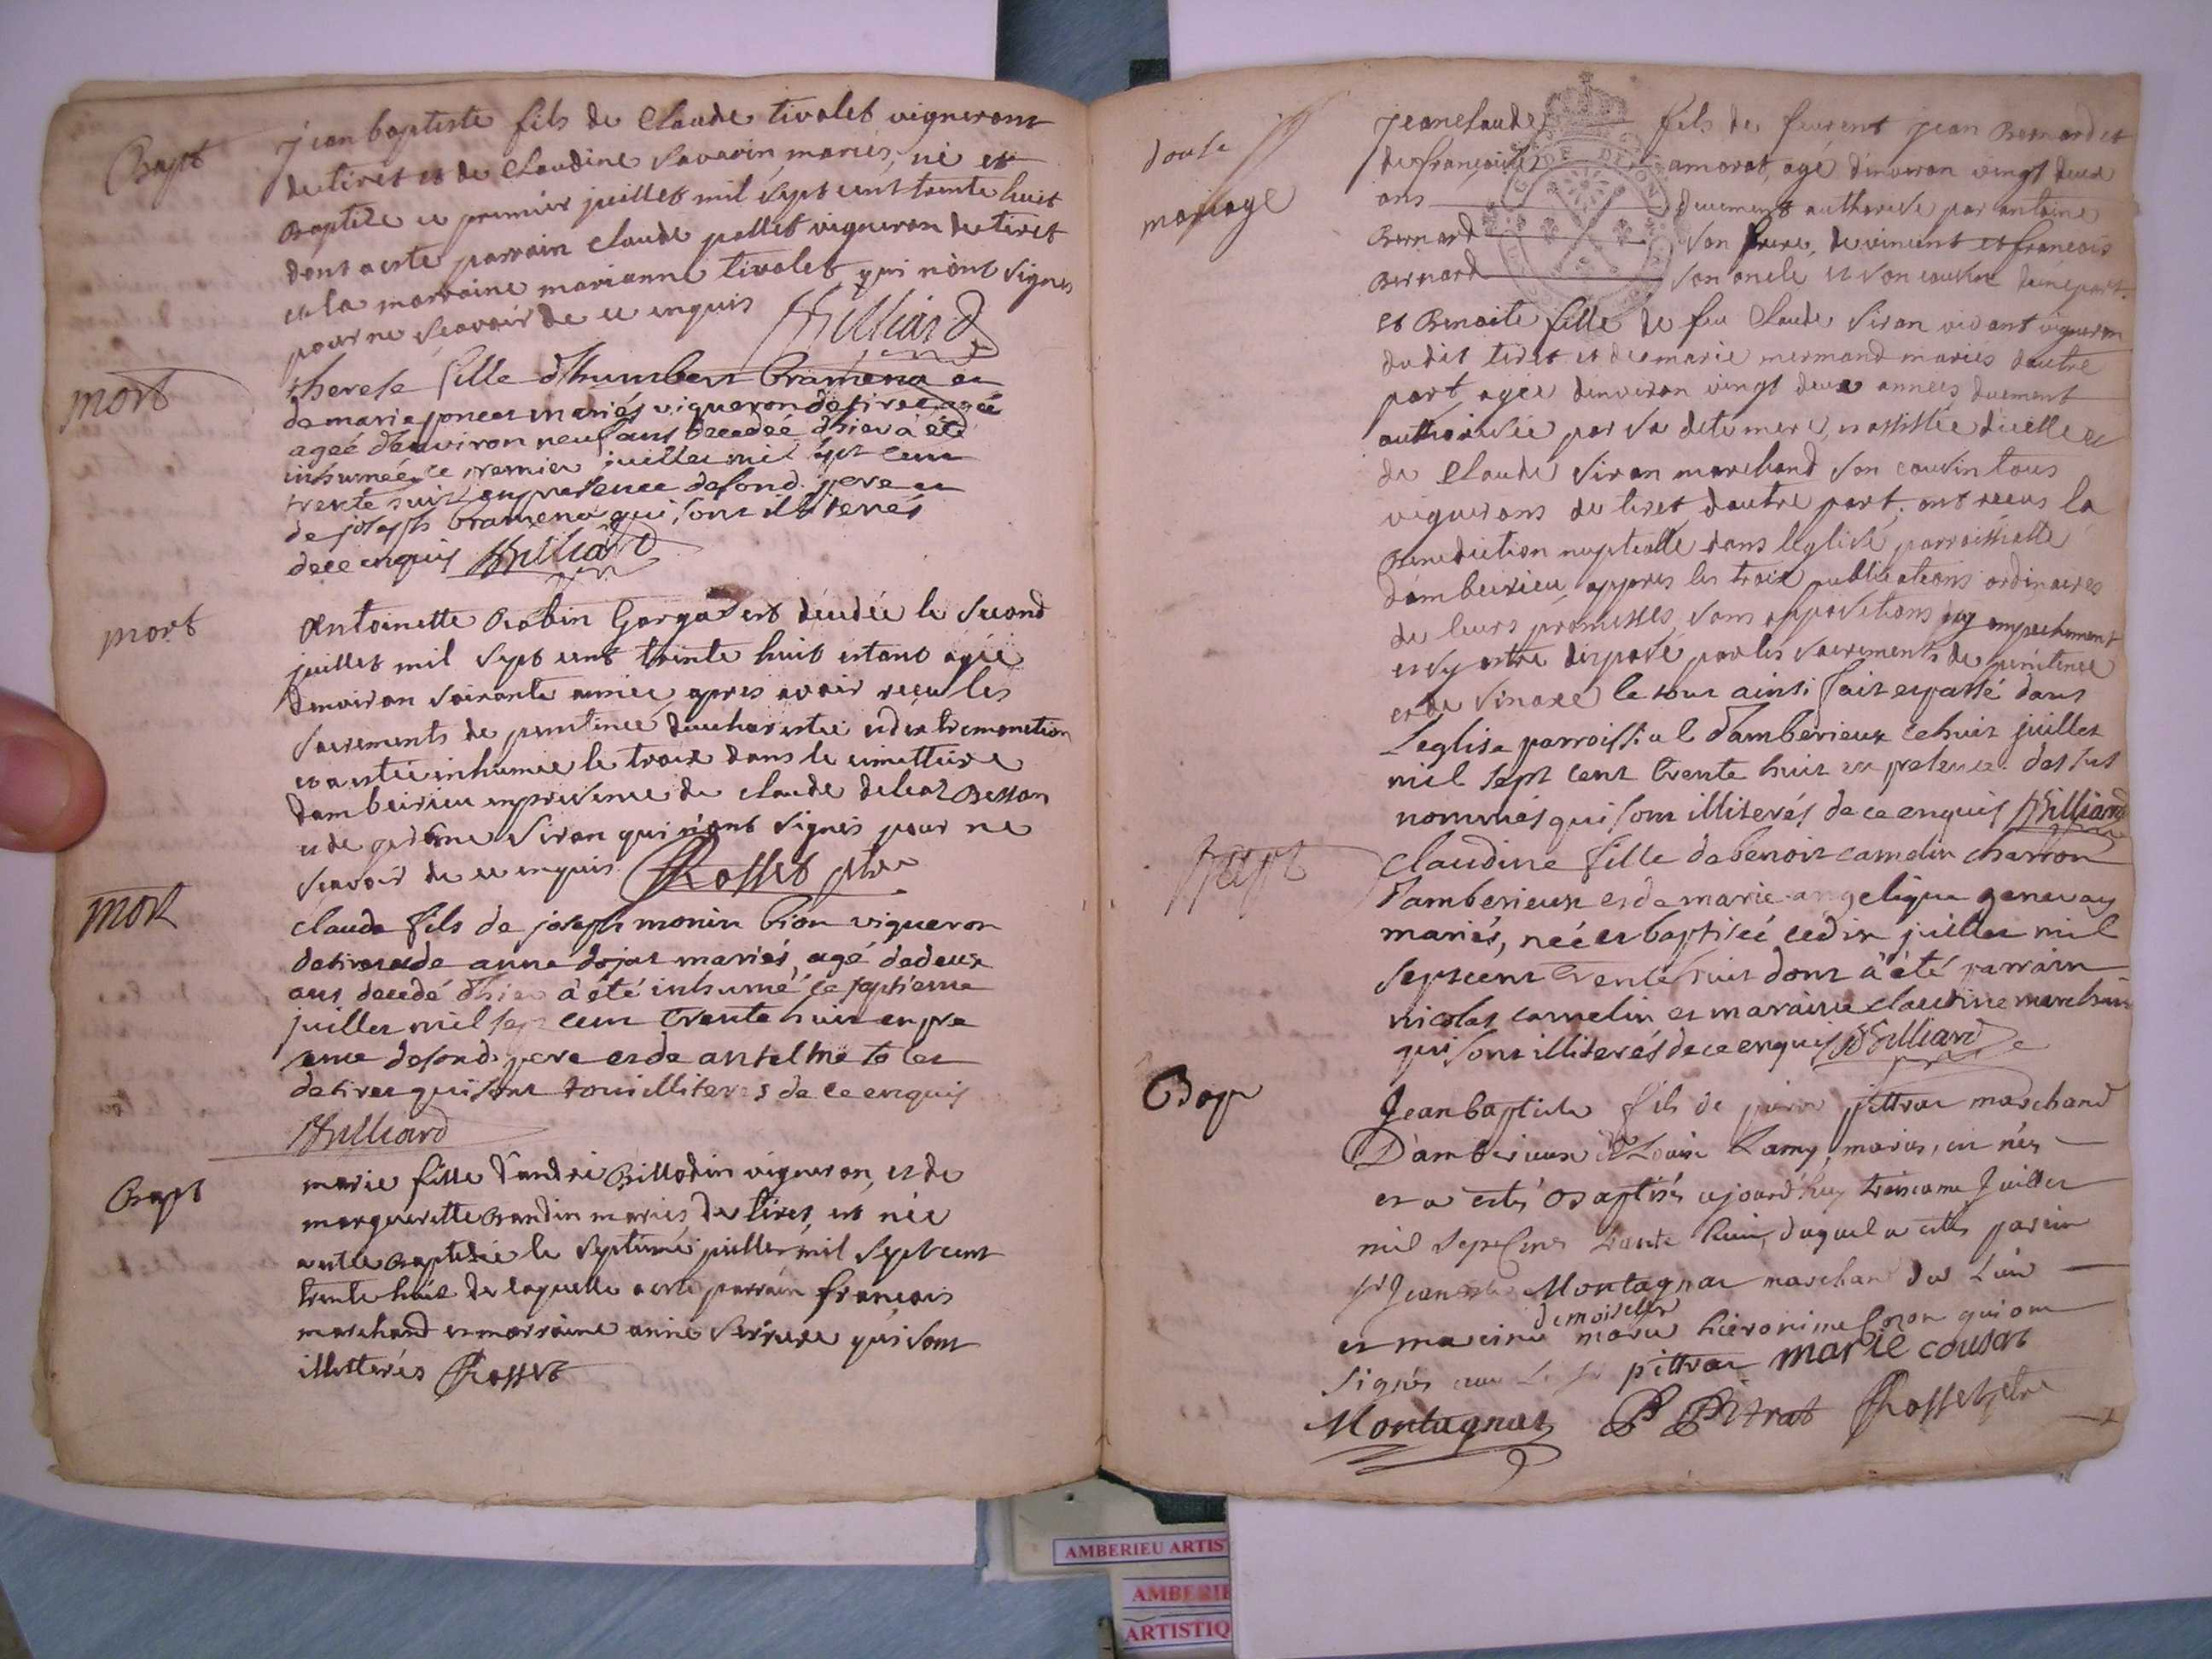 Bapt
jean baptiste fils de Claude tivolet vigneront
de tiret et de Claudine Savarin mariés, né et
Baptizé ce premier juillet mil sept cent trente huit
dont a esté parrain Claude pollet vigneron de tiret
et la marraine marianne tivolet qui n'ont signes
pour ne scavoir de ce enquis hilliard
mort
therese fille d'humbert bramena et
de marie poncet mariés vigneron de tiret
ageé d'environ neuf ans decedée d'hier a été
inhumée ce premier juillet mil sept cent
trente huit en presence de sond. pere et
de joseph bramena qui sont illiterés
de ce enquis hilliard
mort
Antoinette Robin Gorgat est décédée le second
juillet mil sept cent trente huit estant agée
denviron soixante année apres avoir receu les
sacrements de penitence deucharistie et dextremonction
et a estée inhumée le troix dans le cimettiere
dambeirieu en presence de claude Besson
et de gerosme Siran qui n'ont signés pour ne
scavoir de ce enquis Rosset ptre
mort
claude fils de joseph monin bion vigneron
de tiret et de anne dojat mariés, agé de deux
ans decedé d'hier a été inhumé ce septieme
juillet mil sept cent trente huit en pre
sence de sond. pere et de antelme
de tiret qui sont tous illiterés de ce enquis
hilliard
Bapt
marie fille d'andré Billodin vigneron, et de
marguerette Brandin mariés de tiret, est née
a esté Baptizée le septieme juillet mil sept cent
trente huit de laquelle a esté parrain françois
marchand et marraine anne qui sont
illitterés Rosset
mariage
jeanclaude fils de feurent jean Bernard et
de françoise amorat, agé denviron vingt deux
ans duement authorisé par antoine
Bernard son frere, de vincent et francois
Bernard son oncle et son cousin dune part.
et Benoite fille de feu Claude Siran vivant vigneron
dudit tiret et de marie mermand mariés dautre
part, agée denviron vingt deux années duement
authorisée par sa dite mere, et assistée dicelle et
de Claude Siran marchand son cousin tous
vignerons de tiret dautre part, ont receus la
Benediction nuptialle dans leglise parroissialle
dambeirieu, appres les troix publications ordinaires
de leurs promesses, sans oppositions ny empechement
et sy estre disposé par les sacrements de penitence
et de sinaxe le tout ainsi fait et passé dans
Leglise parroissial d'amberieux ce huit juillet
mil sept cent trente huit en presence des sus
nommés qui sont illiterés de ce enquis hilliard
Bapt
Claudine fille de benoit camelin charron
d'amberieux et de marie angelique genevay
mariés, née et baptisée ce dix juillet mil
sept cent trente huit dont a été parrain
nicolas camelin et maraine claudine
qui sont illiterés de ce enquis hilliard
Bapt
Jean baptiste fils de pierre pittrat marchand
D'amberieux et Louise Lamy, mariés, est nés
et a estés Baptisés ajourd'huy treiseme Juillet
mil sept cens trante huit, duquel a estes parein
sr Jean Montagnat marchan du Lieu
et mareine demoiselle marie hieronime qui ont
signés avec Le sr pittrat marie cousat
Montagnat P Pitrat Rosset ptre
AMBERIEU ARTIS
AMBERIE
ARTISTIQ